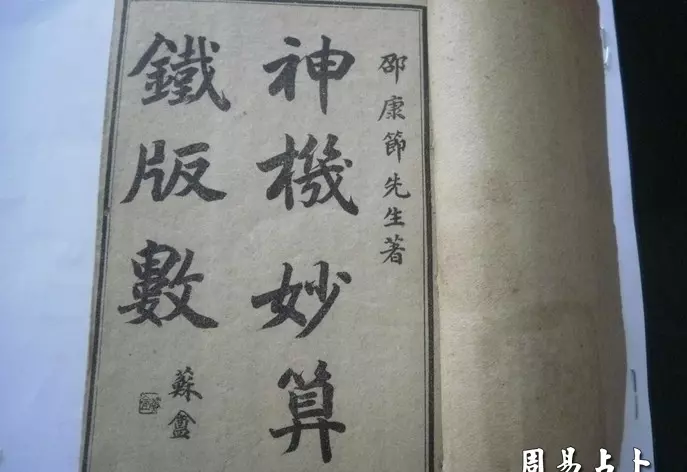 邵康節先生著
神機妙算
鐵版數
蘇盫
周易占卜